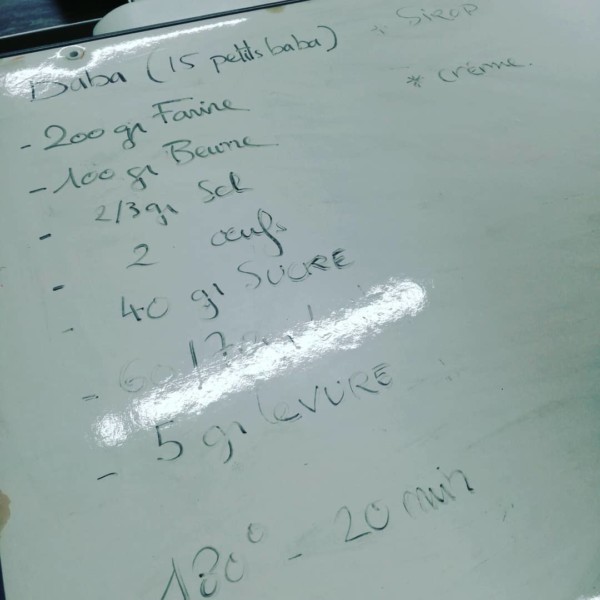 Baba (15 petits baba)
* Sirop
* Crème.
- 200 gr Farine
- 100 gr Beurre
- 2/3 gr Sel
- 2 œufs
- 40 gr SUCRE
- 60/70
- 5 gr leVURE
180° - 20 min